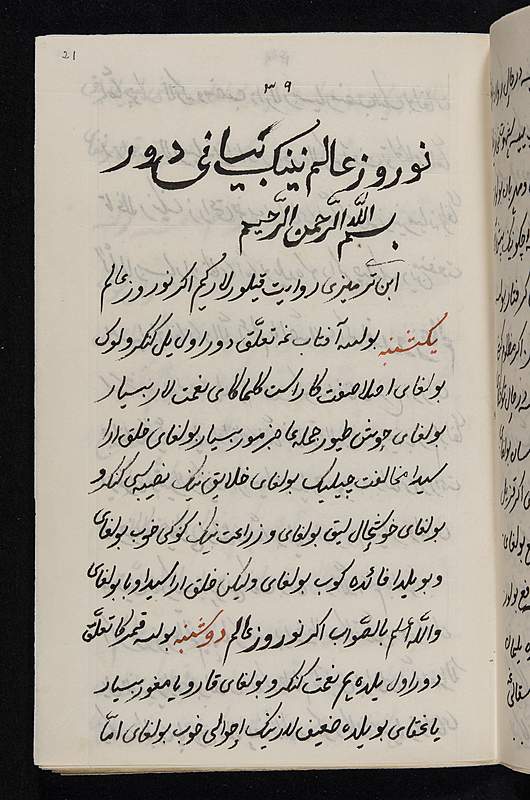 21
٣٩
نوروز عالم نینک بیانی دورور
بسم الله الرحمن الرحیم
ابن ترمیزی روایت قیلورلار کیم اکر نوروز عالم
یکشنبه بولسه آفتاب غه تعلّق دور اول یل کنکرولوک
بولغای اصلا صفت کاراست کلماکای نعمت لار بسیار
بولغای جوش طیور جمله جا بسیار بولغای خلق ارا
سیدا مخالفت جیلیک بولغای خلایق نینک نصیبه سی کنکرو
بولغای خوشحال لیق بولغای و زراعت نینک کوکی خوب بولغای
و بو یلدا فائده کوب بولغای ولیکن خلق اراسیدا وبا بولغای
والله أعلم بالصّواب اکر نوروز عالم دوشنبه بولسه قمر کا تعلّق
دور اول یلده یم نعمت کنکرو بولغای قار و یامغور بسیار
یاغقای بو یلده ضعیف لار نینک احوالی خوب بولغای امّا